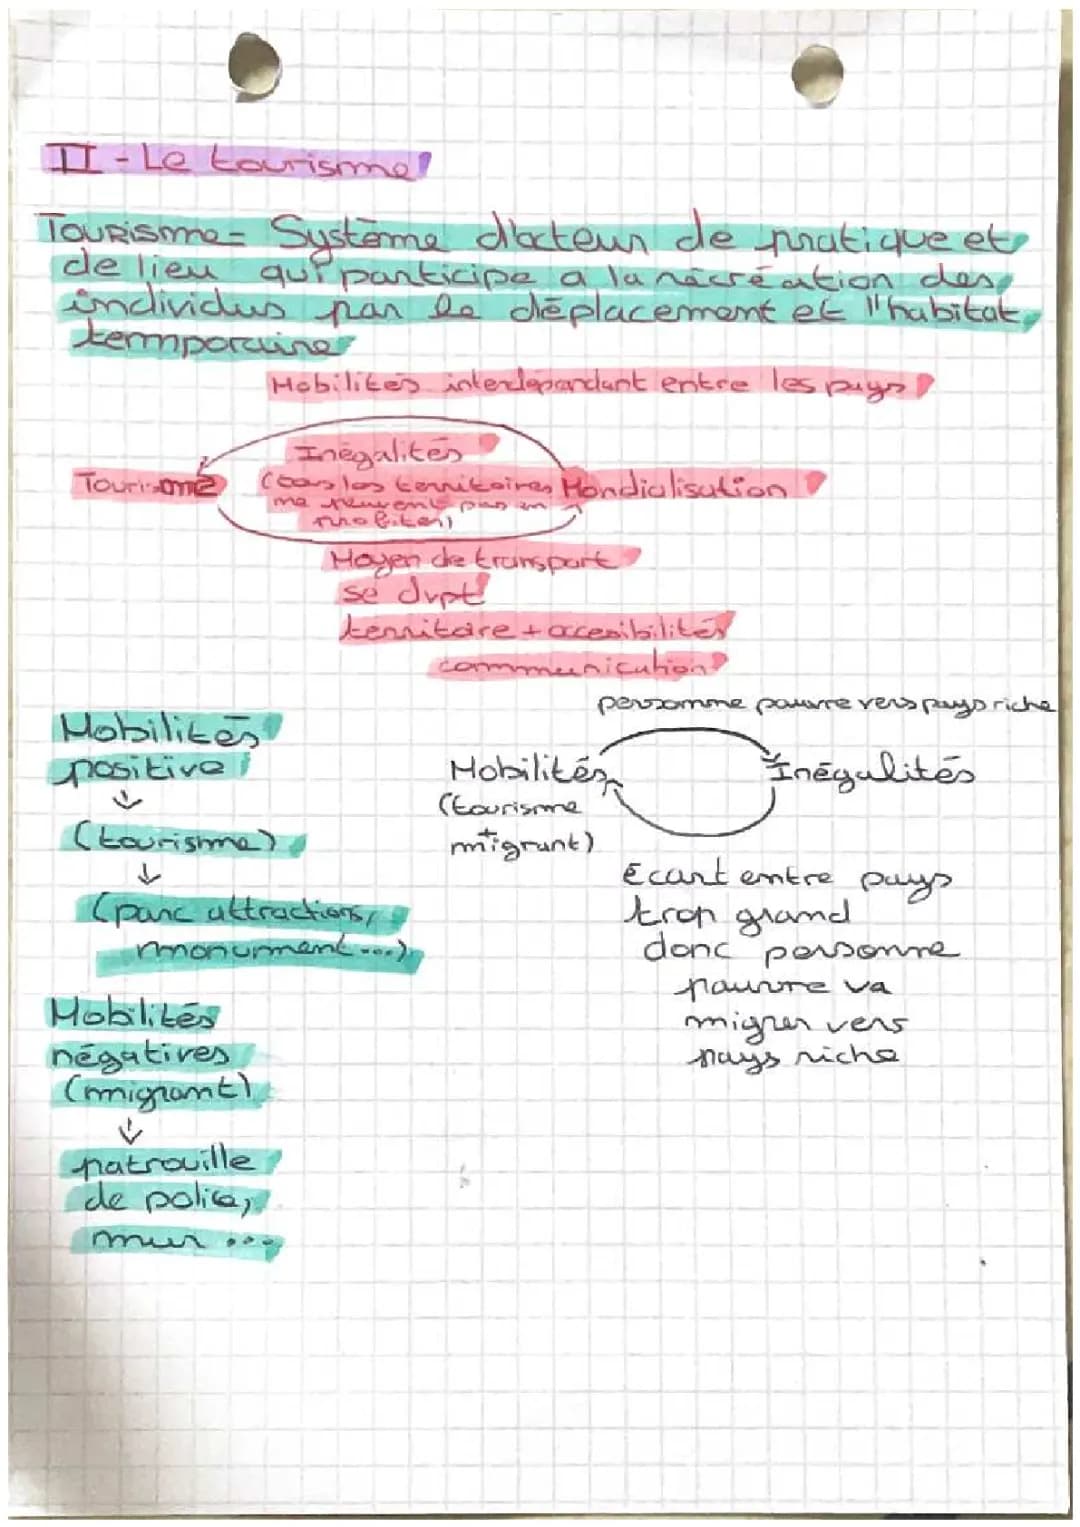 II - Le tourisme
TOURISme = Système d'acteur de pratique et
de lieu qui participe a la récréation des
individus par le déplacement et l'habitat
temporaire
Mobilités interdépendant entre les pays
Inégalités
Tourisme (tous les territoires Mondialisation
ne peuvent pas en
profiter)
Moyen de transport
se dvpt
territoire + accesibilités
communication
personne pauvre vers pays riche
Mobilités
positive
↓
(tourisme)
↓
(parc attractions,
monument...)
Mobilités
négatives
(migrant)
↓
patrouille
de police,
mur ...
Mobilités Inégalités
(tourisme
+
migrant)
Écart entre pays
trop grand
donc personne
pauvre va
migrer vers
pays riche